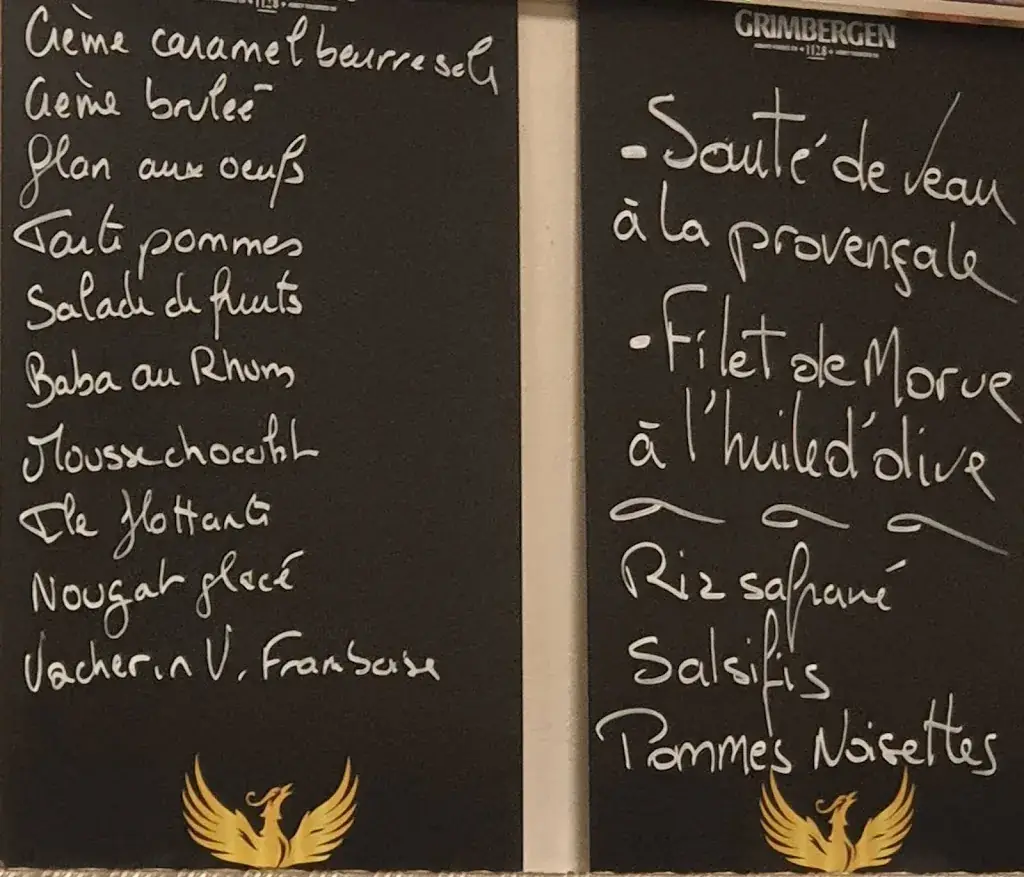 Crème caramel beurre salé
Crème brulée
Flan aux oeufs
Tarte pommes
Salade de fruits
Baba au Rhum
Mousse chocolat
Ile flottante
Nougat glacé
Vacherin V. Framboise
GRIMBERGEN
1128
- Sauté de veau
à la provençale
- Filet de Morue
à l'huile d'olive
Riz safrané
Salsifis
Pommes Noisettes